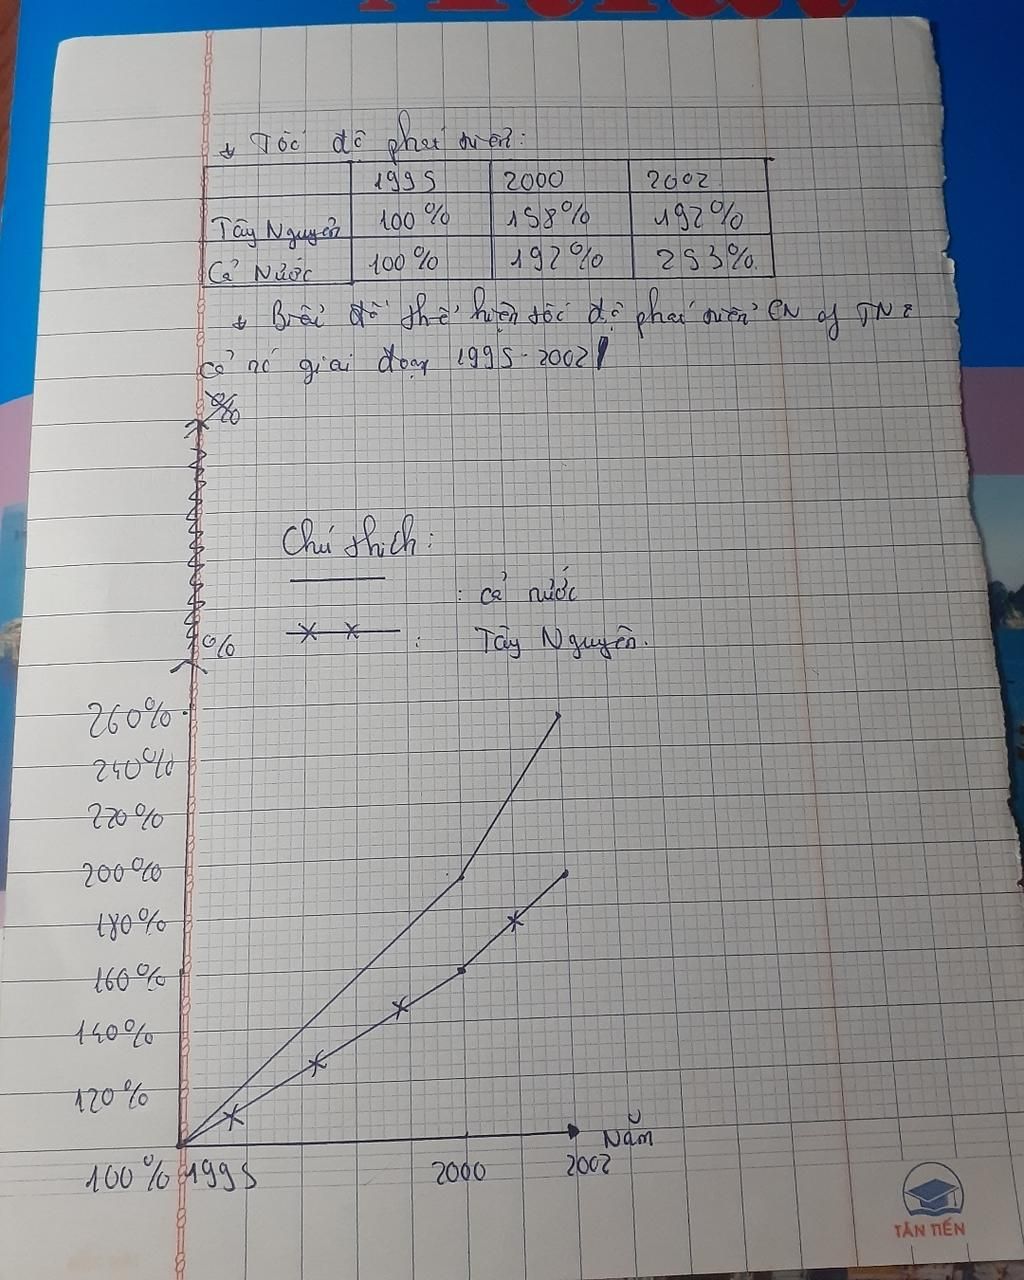 ↓ Tốc độ phát triển:
1995 2000 2002
Tây Nguyên 100% 158% 192%
Cả Nước 100% 192% 253%
↓ Biểu đồ thể hiện tốc độ phát triển CN of TN &
cả nc giai đoạn 1995-2002
%
Chú thích:
: cả nước
%
: Tây Nguyên.
260%
240%
220%
200%
180%
160%
140%
120%
Năm
100% 1995 2000 2002
TÂN TIẾN